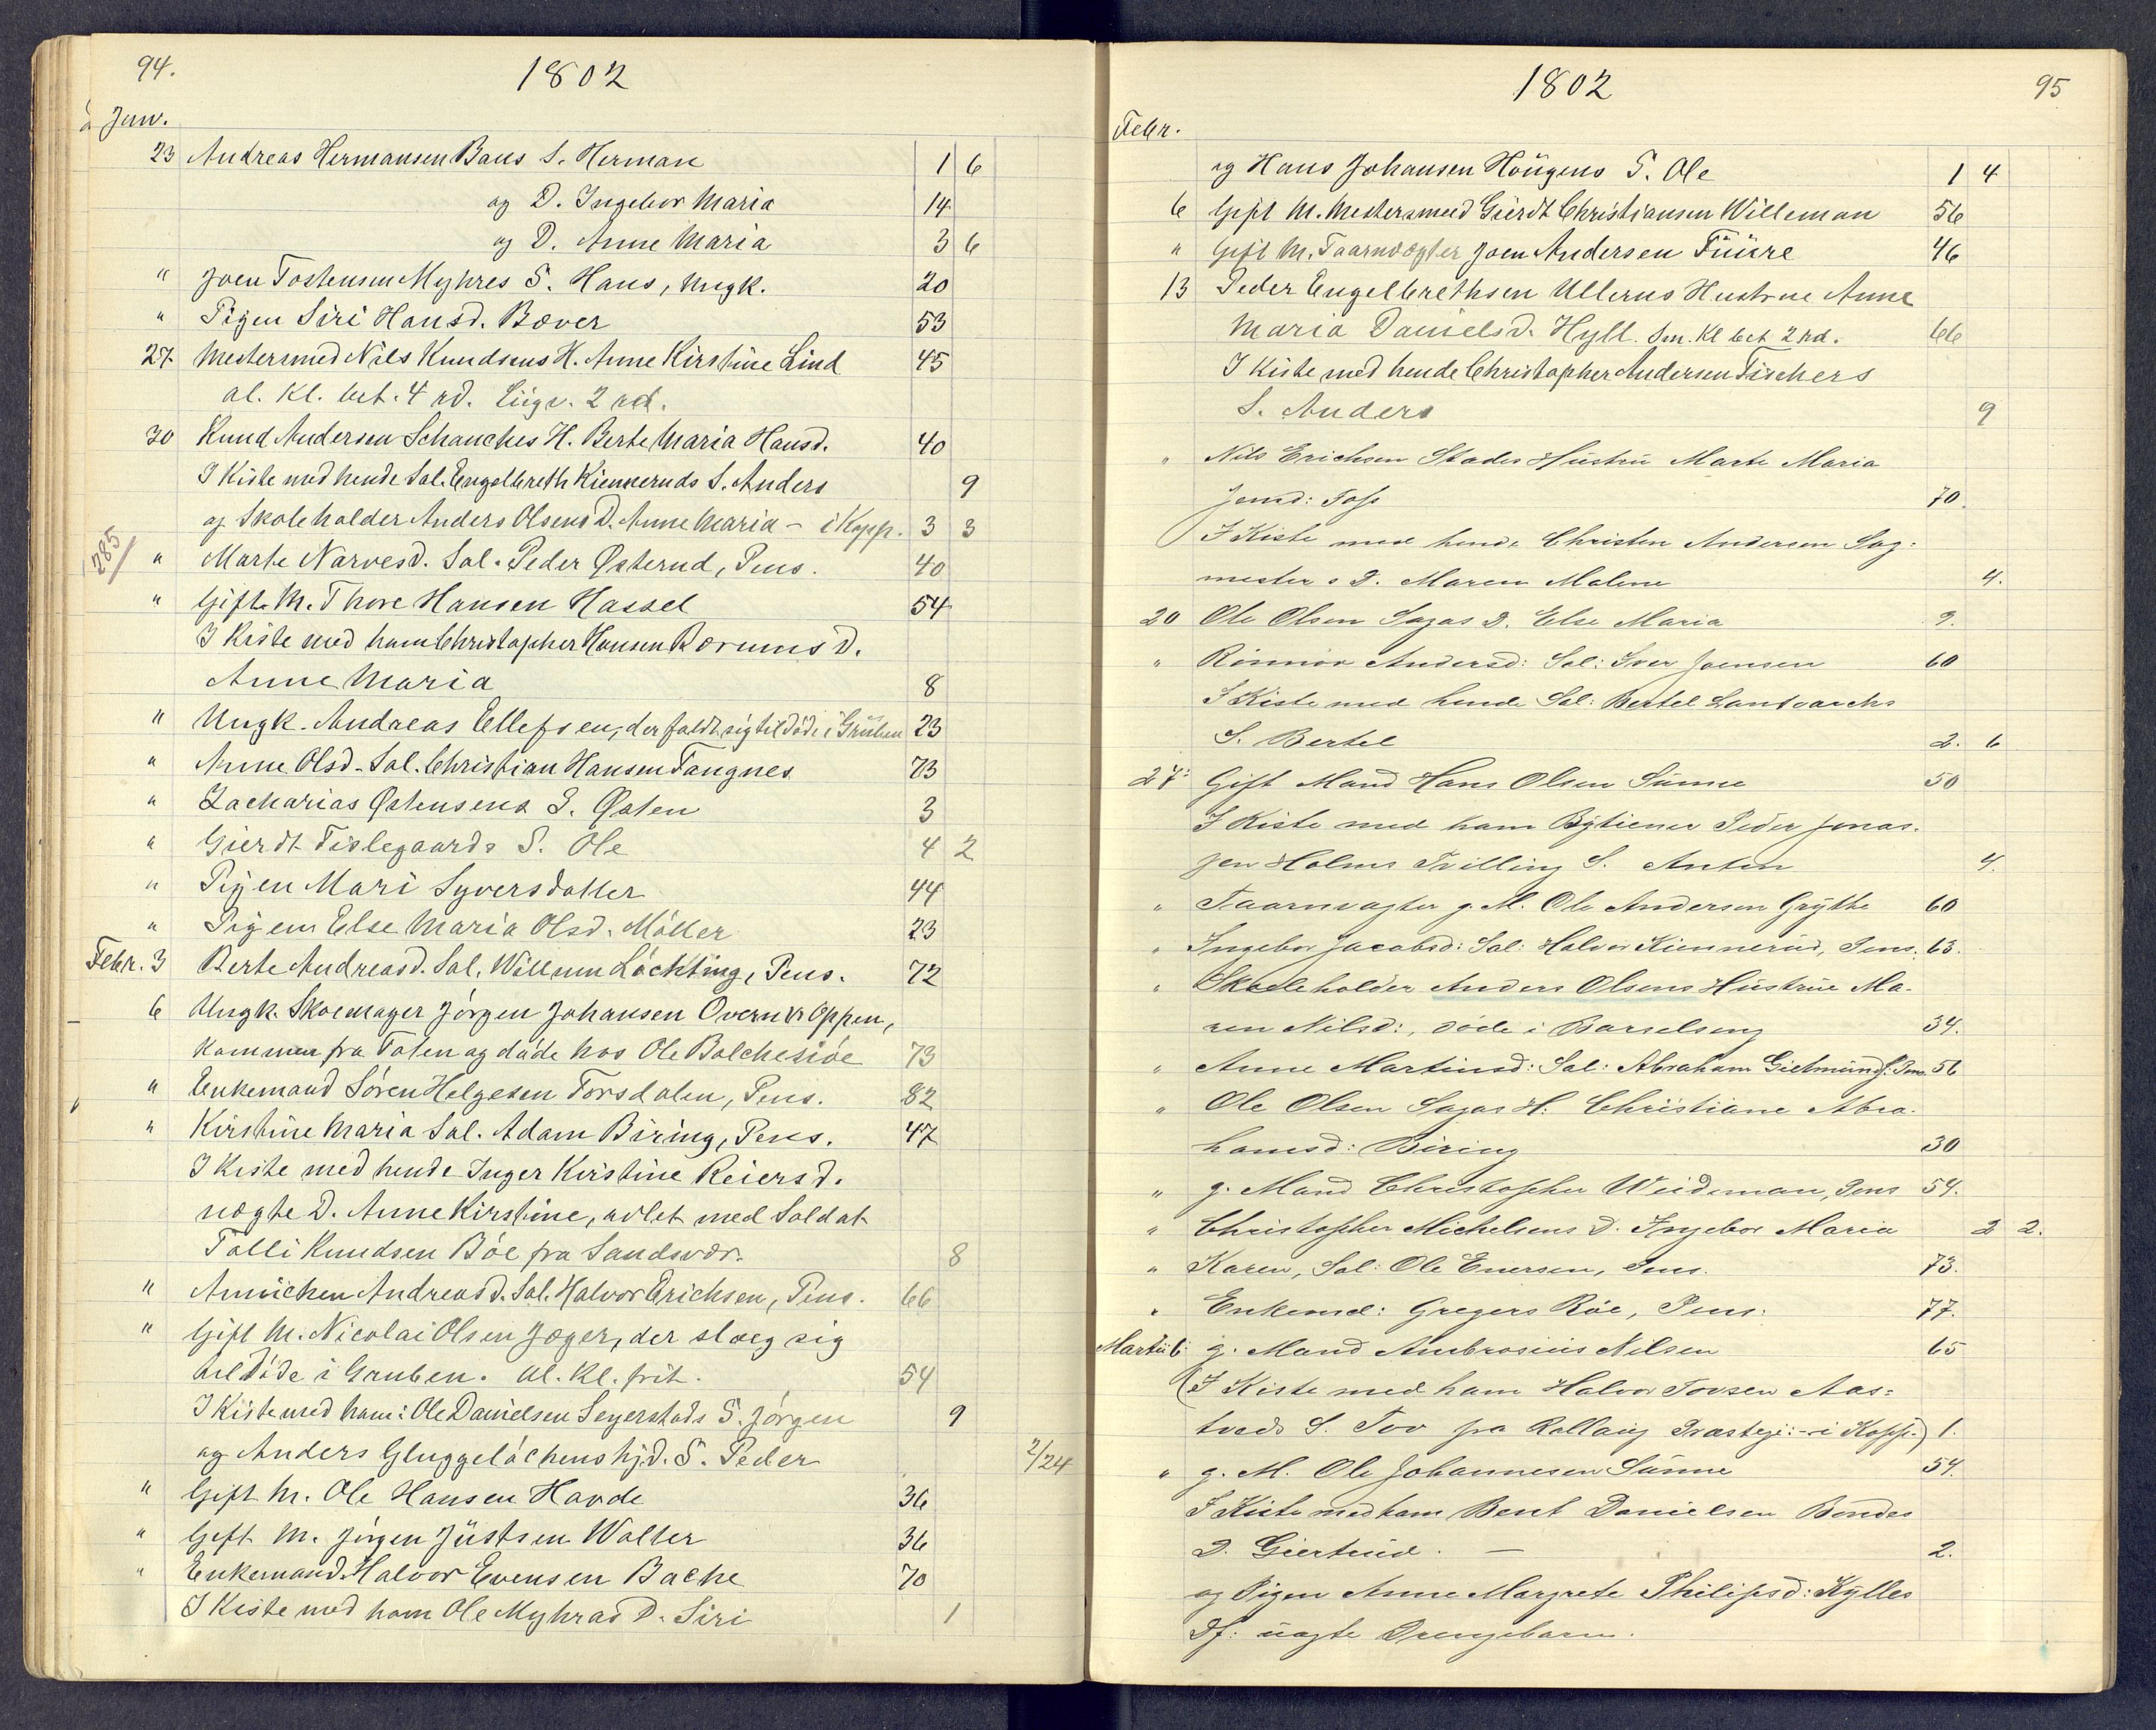 94.
1802
Jan.
23 Andreas Hermansen Baus S. Herman 1 6
og D. Ingebor Maria 14
og D. Anne Maria 3 6
" Joen Tostensen Myhres S. Hans, Ungk. 20
" Pigen Siri Hansd. Bæver 53
27 Mestersmed Nils Knudsens H. Anne Kirstine Lind 45
al. Kl. bet. 4 rd. Liigv. 2 rd.
30 Knud Andersen Schanches H. Berte Maria Hansd. 40
I Kiste med hende Sal. Engelbreth Kienneruds S. Anders 9
og Skoleholder Anders Olsens D. Anne Maria - i Kopp. 3 3
285/
" Marte Narvesd. Sal. Peder Østerud, Pens. 40
" Gift M. Thore Hansen Hassel 54
I Kiste med ham Christopher Hansen Borums D.
Anne Maria 8
" Ungk. Andreas Ellefsen, der faldt sig til Døde i Gruben 23
" Anne Olsd. Sal. Christian Hansen Tangnes 73
" Zacharias Østensens S. Østen 3
" Gierdt Tislegaards S. Ole 4 2
" Pigen Mari Syversdatter 44
" Pigen Else Maria Olsd. Möller 23
Febr. 3 Berte Andreasd. Sal. Willum Löchting, Pens. 72
6 Ungk. Skoemager Jörgen Johansen Overn v. Oppen,
kommen fra Toten og døde hos Ole Bolchesiöe 73
" Enkemand Sören Helgesen Torsdalen, Pens. 82
" Kirstine Maria Sal. Adam Biring, Pens. 47
I Kiste med hende Inger Kirstine Reiersd.
uægte D. Anne Kirstine, avlet med Soldat
Tolli Knudsen Böe fra Sandsvær. 8
" Annichen Andreasd. Sal. Halvor Erichsen, Pens. 66
" Gift M. Nicolai Olsen Jæger, der sloeg sig
til Døde i Gruben. al. Kl. frit. 54
I Kiste med ham: Ole Danielsen Seyerstads S. Jörgen 9
og Anders Gluggelöchens hj.d. S. Peder 2/24
" Gift M. Ole Hansen Havde 36
" Gift M. Jörgen Jüstsen Walter 36
" Enkemand Halvor Evensen Bache 70
I Kiste med ham Ole Myhras D. Siri 1
1802
95
Febr.
og Hans Johansen Höugens S. Ole 1 4
6 Gift M. Mestersmed Gierdt Christiansen Willeman 56
" Gift M. Taarnvægter Joen Andersen Füüre 46
13 Peder Engelbrethsen Ullerns Hustrue Anne
Maria Danielsd. Hyll. Sm. Kl bet 2 rd. 66
I Kiste med hende Christopher Andersen Fischers
S. Anders 9
" Nils Erichsen Stades Hüstrü Marte Maria
Jensd: Foss 70.
I Kiste med hende Christen Andersen Sag-
mesters D. Maren Malene 4.
20 Ole Olsen Sagas D. Else Maria 9.
" Rönnov Andersd: Sal: Iver Joensen 60
I Kiste med hende Sal: Bertel Landvarchs
S. Bertel 2. 6
27: Gift Mand Hans Olsen Sünne 50
I Kiste med ham Bÿtiener Peder Jonas-
sen Holms Tvilling S. Anton 4.
" Taarnvagter g. M. Ole Andersen Grÿthe 60
" Ingebor Jacobsd: Sal: Halvor Kiennerud, Pens. 63.
" Skoleholder Anders Olsens Hüstrüe Ma-
ren Nilsd:, døde i Barselseng 34.
" Anne Martinsd: Sal: Abraham Gietmünds. Pens. 56
" Ole Olsen Sagas H. Christiane Abra-
hamsd: Biring 30
" g. Mand Christopher Weideman, Pens 54.
" Christopher Michelsens D. Ingebor Maria 2 2.
" Karen, Sal: Ole Enersen, Pens. 73.
" Enkemd: Gregers Röe, Pens: 77.
Martii 6 g. Mand Ambrosius Nilsen 65
(I Kiste med ham Halvor Tovsen Aas-
tveds S. Tov fra Rollaug Præstegj: - i Kopp.) 1.
" g. M. Ole Johannesen Sünne 54.
I Kiste med ham Bent Danielsen Bondes
D. Giertrüd. — 2.
og Pigen Anne Margrete Philipsd: Kÿlles
Df: üægte Drengebarn.